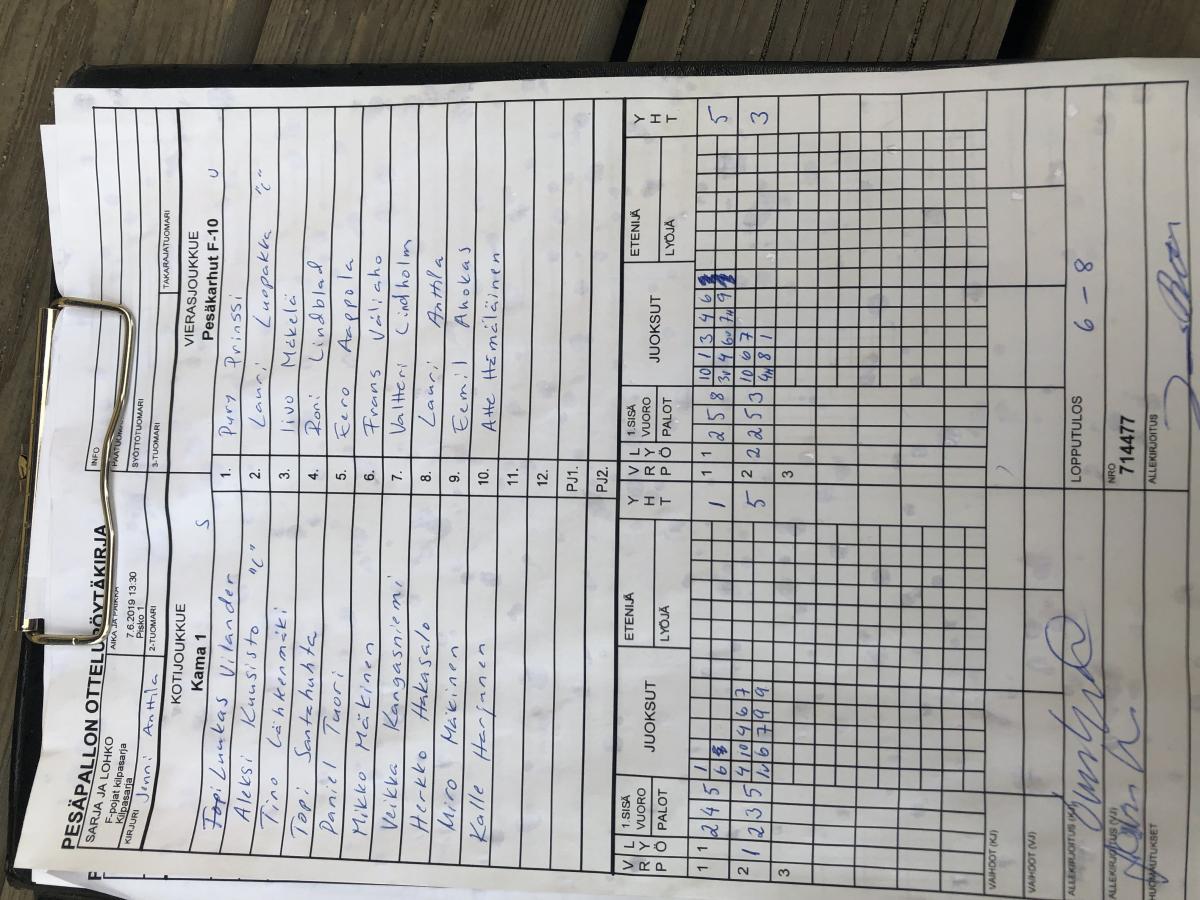 PESÄPALLON OTTELUPÖYTÄKIRJA
SARJA JA LOHKO
F-pojat kilpasarja
Kilpasarja
AIKA JA PAIKKA
7.6.2019 13:30
Pisko 1
INFO
PÄÄTUOMARI
SYÖTTÖTUOMARI
KIRJURI Jenni Anttila
2-TUOMARI
3-TUOMARI
TAKARAJATUOMARI
KOTIJOUKKUE
Kama 1 S
VIERASJOUKKUE
Pesäkarhut F-10 U
Luukas Vilander 1. Pyry Prinssi
Aleksi Kuusisto "C" 2. Lauri Luopakka "C"
Tino Lähkenmäki 3. Iivo Mäkelä
Topi Santahuhta 4. Roni Lindblad
Daniel Tuori 5. Eero Aappola
Mikko Mäkinen 6. Frans Väliaho
Veikka Kangasniemi 7. Valtteri Lindholm
Herkko Hakasalo 8. Lauri Anttila
Miro Mäkinen 9. Eemil Ahokas
Kalle Harjunen 10. Atte Hämäläinen
11.
12.
PJ1.
PJ2.
V R P L Y Ö 1.SISÄ VUORO PALOT JUOKSUT ETENIJÄ LYÖJÄ Y H T V R P L Y Ö 1.SISÄ VUORO PALOT JUOKSUT ETENIJÄ LYÖJÄ Y H T
1 1 2 4 5 1 6 1 1 1 2 5 8 10 1 3 4 6 5
2 1 2 3 5 4 10 4 6 7 5 2 2 2 5 3 10 6 7 8 1 3
3 3
VAIHDOT (KJ)
VAIHDOT (VJ)
ALLEKIRJOITUS (KJ)
LOPPUTULOS 6 - 8
ALLEKIRJOITUS (VJ)
NRO
714477
HUOMAUTUKSET
ALLEKIRJOITUS